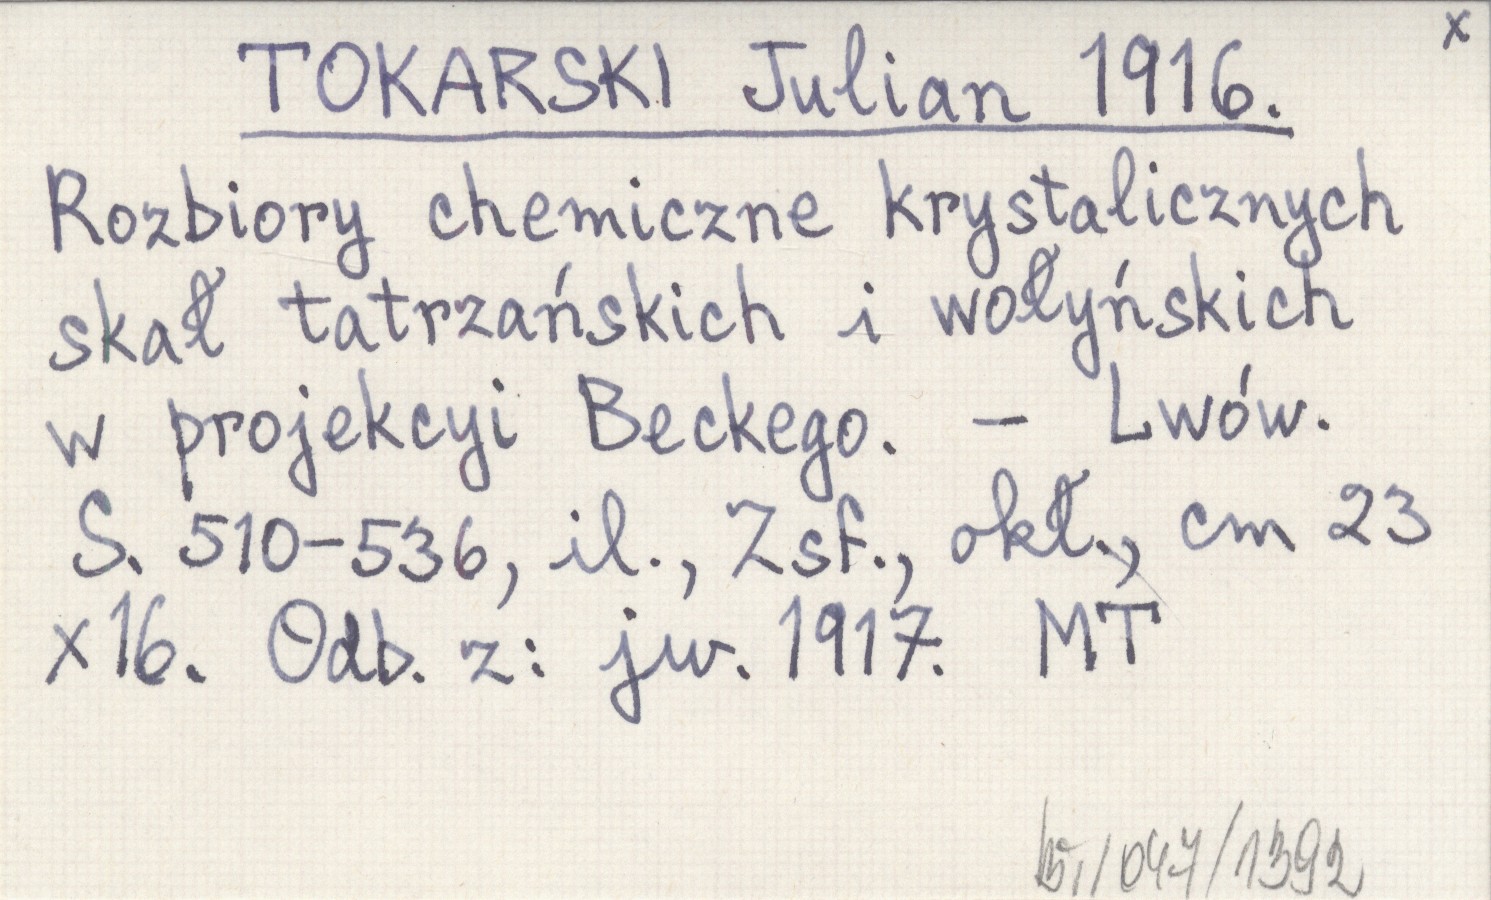 x
TOKARSKI Julian 1916.
Rozbiory chemiczne krystalicznych
skał tatrzańskich i wołyńskich
w projekcyi Beckego. – Lwów.
S. 510–536, il., Zsf., okł., cm 23
x16. Odb. z: jw. 1917. MT
/047/1392